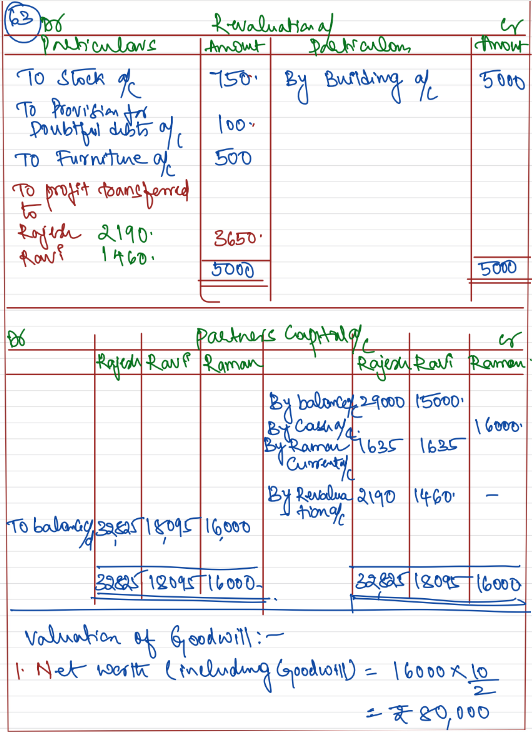 63
Dr Revaluation a/c Cr
Particulars Amount Particulars Amount
To Stock a/c 750. By Building a/c 5000
To Provision for
Doubtful debts a/c 100.
To Furniture a/c 500
To profit transferred
to
Rajesh 2190. 3650.
Ravi 1460.
5000 5000
Dr Partners Capital a/c Cr
Rajesh Ravi Raman Rajesh Ravi Raman
By balance 29000 15000.
By Cash a/c. 16000.
By Raman 1635 1635
Current a/c
By Revalua 2190 1460. -
-tion a/c
To balance c/d 32825 18095 16,000
32825 18095 16000- 32825 18095 16000
Valuation of Goodwill:-
1. Net worth (including Goodwill) = 16000 x 10/2
= ₹ 80,000